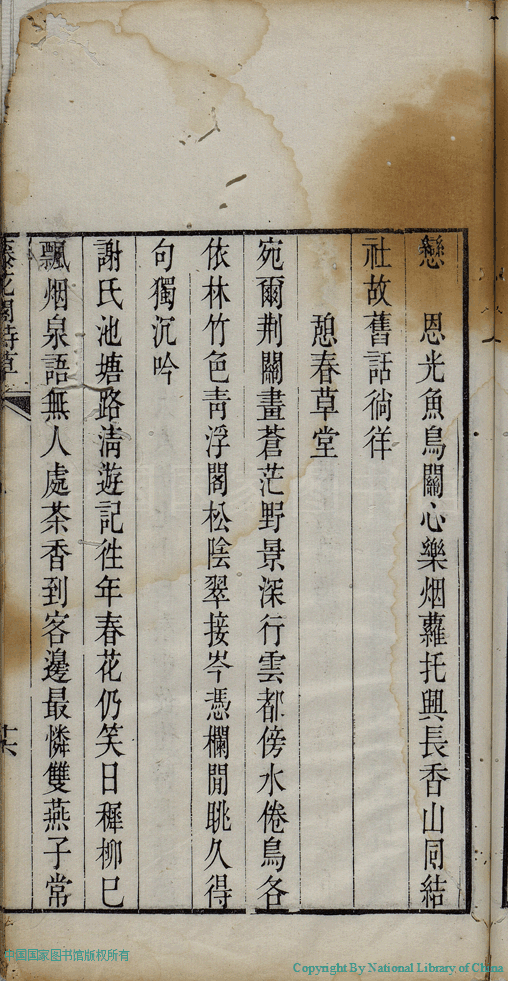 戀　恩光魚鳥關心樂烟蘿托興長香山同結
社故舊話徜徉
憩春草堂
宛爾荆關畫蒼茫野景深行雲都傍水倦鳥各
依林竹色靑浮閣松陰翠接岑憑欄閒眺久得
句獨沉吟
謝氏池塘路淸遊記徃年春花仍笑日穉柳巳
飄烟泉語無人處茶香到客邊最憐雙燕子常
花閣詩草
中国国家图书馆版权所有
Copyright By National Library of China